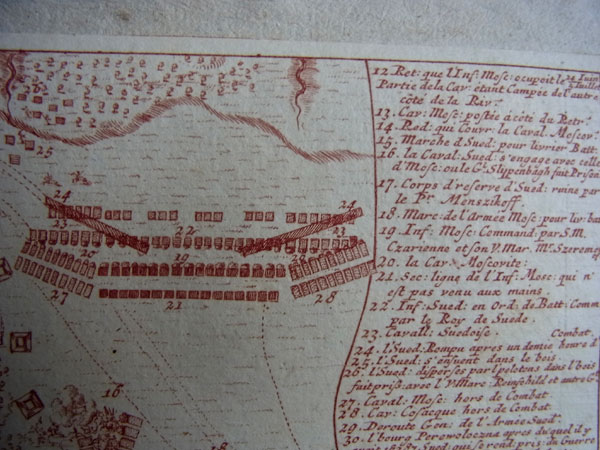 12. Ret: que l'Inf: Mosc: ocupoit le
Partie de la Cav: etant Campée de l'autre
côte de la Riv:
13. Cav: Mosc: postée a côte du Retr:
14. Red: que Couvr: la Caval: Moscov:
15. Marche d'Sued: pour livrier Batt:
16. la Caval: Sued: s'engage avec celle
d'Mosc: ou le Gl. Slypenbagh fuit Prison
17. Corps d'reserve d'Sued: ruine par
le Pr. Menszikoff
18. Marc: de l'armée Mosc: pour liv: bat
19. Inf: Mosc: Command: par S.M.
Czarienne et son V. Mar: Mr. Szereme
20. la Cav: Moscovite:
21. Sec: ligne de l'Inf: Mosc: qui n'
est pas renu aux mains
22. Inf: Sued: en Ord: de Batt: Comm
par le Roy de Suede
23. Cavall: Suedoise. Combat.
24. l'Sued: Rompu apres un demie heure d'
25. l'Sued: s'enfuent dans le bois
26. l'Sued: disperses par l'pelotons dans l'bois
fuit pris: avec l'V. Marc: Reinschild et autre G
27. Caval: Mosc: hors de Combat
28. Cav: Cosacque hors de Combat
29. Deroute Gen: de l'Armée Sued:
30. l'bourg Perewoloczna apres du quel il y
Sued: qui se rend: pris: du Guerre
25
24
24
23
22
22
23
20
19
27
21
28
16
18